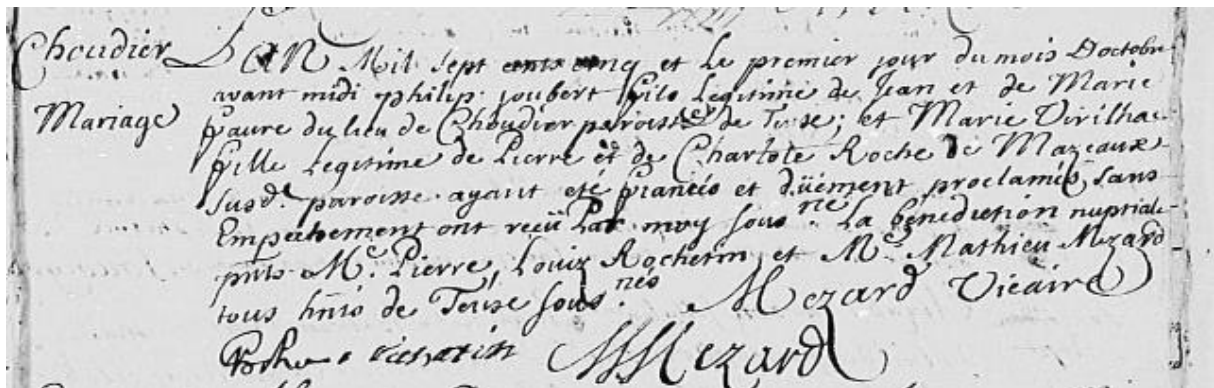 Choudier L'an Mil sept cents cinq et le premier jour du mois Doctobre
avant midi philip. joubert fils Legitime de Jean et de Marie
Mariage faure du lieu de Choudier paroisse de Tense; et Marie Virilhac
fille Legitime de Pierre et de Charlote Roche de Mazeaux
susd.e paroisse ayant eté fiancés et düement proclamés, sans
Empechement ont reçü Par moy sous.né La bénédiction nuptiale
pnts M.e Pierre, Louiz Rochetin, et M.e Mathieu Mezard
tous hnts de Tense sous.nés Mezard Vicaire
MMezard